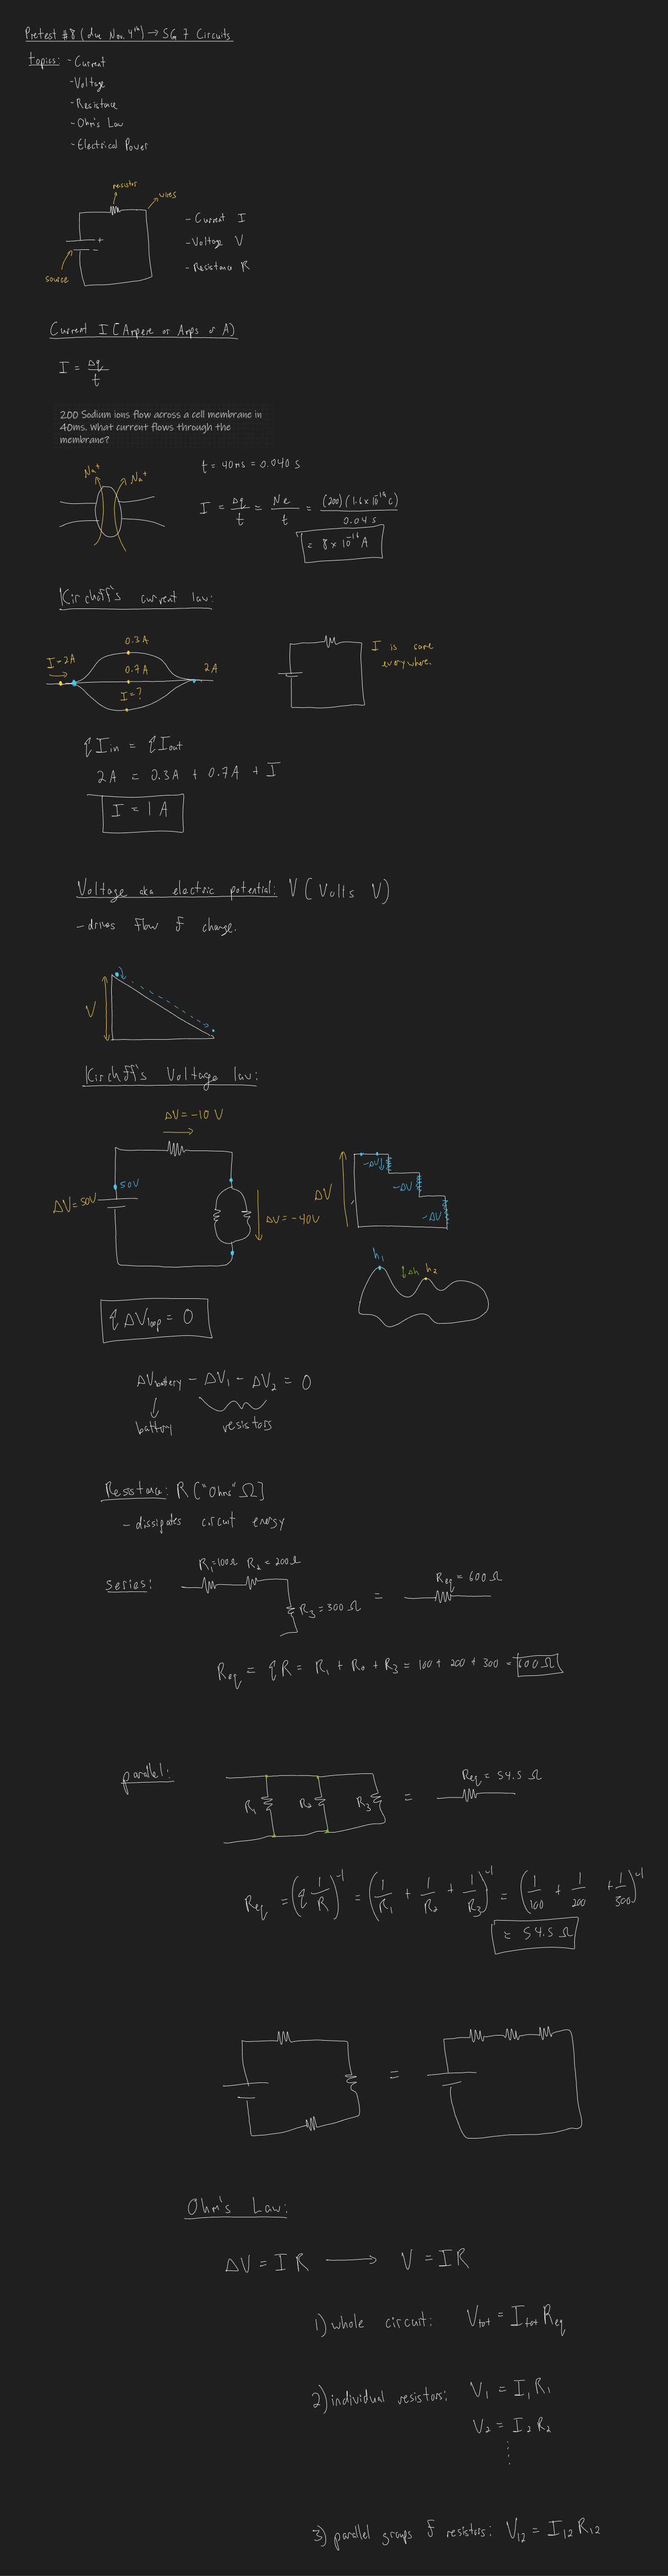 Pretest #8 (due Nov. 4th) → SG 7 Circuits
topics: - Current
- Voltage
- Resistance
- Ohm's Law
- Electrical Power
resistor
wires
+
-
source
- Current I
- Voltage V
- Resistance R
Current I [Ampere or Amps or A]
I = Δq/t
200 Sodium ions flow across a cell membrane in
40ms. What current flows through the
membrane?
Na+ Na+
t = 40ms = 0.040 s
I = Δq/t = Ne/t = (200)(1.6x10^-19 C)/0.04 s
= 8 x 10^-16 A
Kirchoff's current law:
0.3A
I=2A
0.7A
2A
I=?
I is same
everywhere.
ΣIin = ΣIout
2A = 0.3A + 0.7A + I
I = 1 A
Voltage aka electric potential: V (Volts V)
- drives flow of charge.
V
Kirchoff's Voltage law:
ΔV = -10 V
50V
ΔV = 50V
ΔV = -40V
ΔV
-ΔV
-ΔV
-ΔV
h1
Δh h2
ΣΔVloop = 0
ΔVbattery - ΔV1 - ΔV2 = 0
battery
resistors
Resistance: R ["Ohms" Ω]
- dissipates circuit energy
series:
R1=100Ω R2=200Ω
R3=300Ω
=
Req = 600Ω
Req = ΣR = R1 + R2 + R3 = 100 + 200 + 300 = 600Ω
parallel:
R1 R2 R3
=
Req = 54.5 Ω
Req = (Σ 1/R)^-1 = (1/R1 + 1/R2 + 1/R3)^-1 = (1/100 + 1/200 + 1/300)^-1
= 54.5 Ω
=
Ohm's Law:
ΔV = IR → V = IR
1) whole circuit: Vtot = Itot Req
2) individual resistors: V1 = I1R1
V2 = I2R2
⋮
3) parallel groups of resistors: V12 = I12 R12